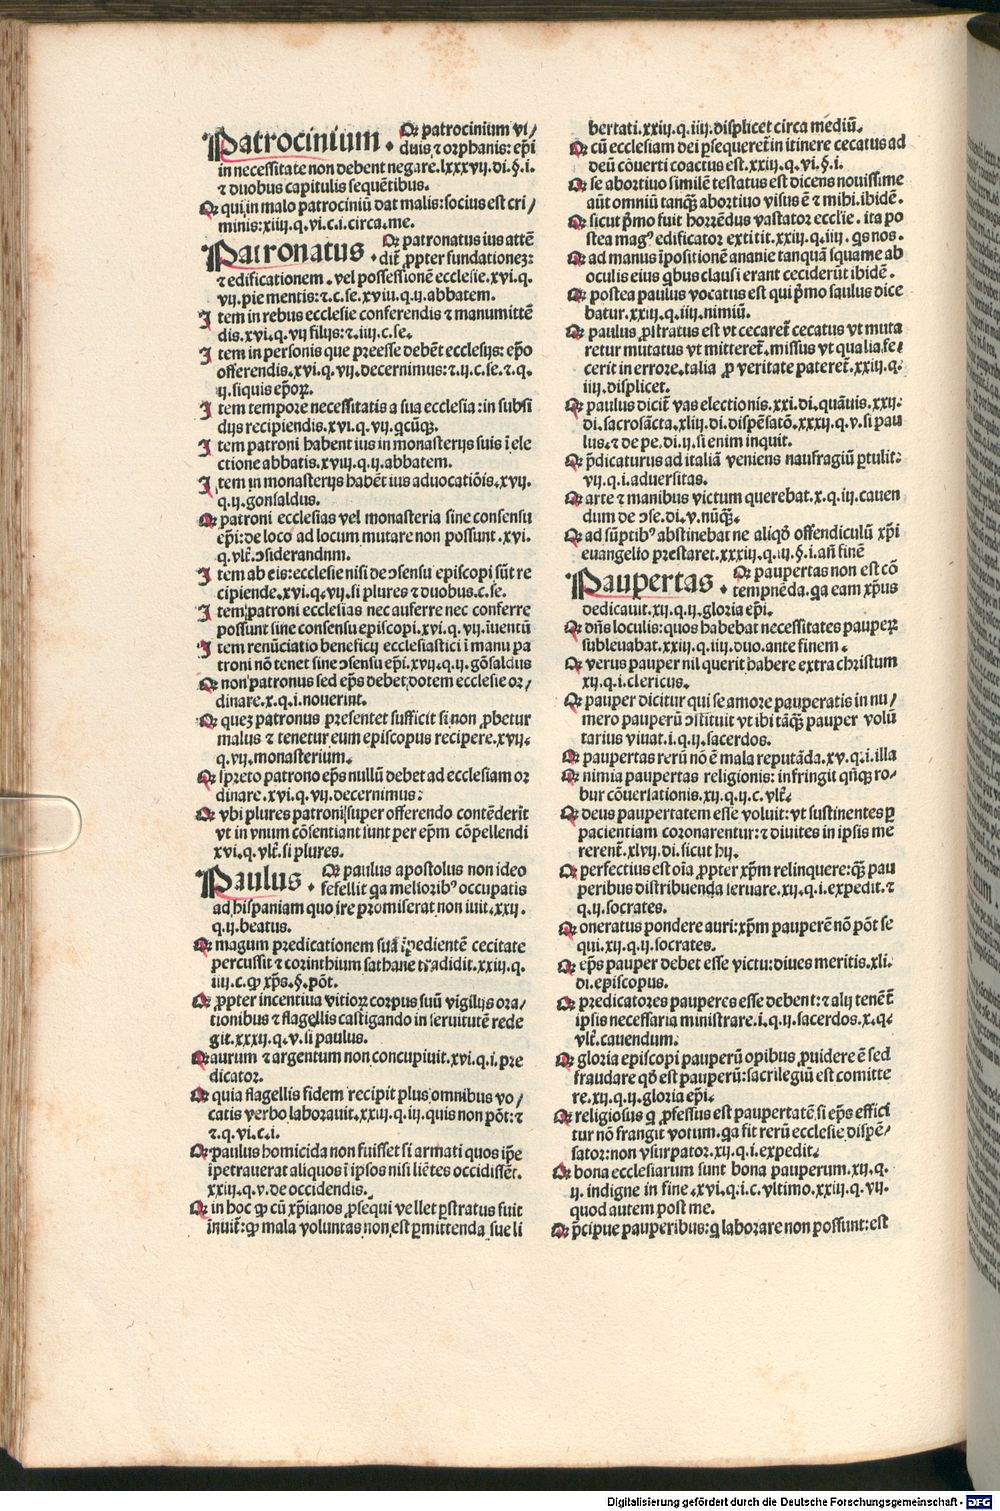 Patrocinium. Qꝫ patrocinium vi/
duis, ⁊ orphanis: ep̄i
in necessitate non debent negare.lxxxvij.di.§.i.
⁊ duobus capitulis sequētibus.
Qꝫ qui in malo patrociniū dat malis:socius est cri/
minis:xiiij.q.vi.c.i.circa.me.
Patronatus. Qꝫ patronatus ius attē
dit̄ ꝓpter fundationeꝫ:
⁊ edificationem.vel possessionē ecclesie.xvi.q.
vij.pie mentis:⁊.c.se.xviij.q.ij.abbatem.
Item in rebus ecclesie conferendis ⁊ manumittē
dis.xvi.q.vij filijs:⁊.iij.c.se.
Item in personis que preesse debēt ecclesijs: ep̄o
offerendis.xvi.q.vij.decernimus:⁊.ij.c.se.⁊.q.
ij.siquis ep̄oꝝ.
Item tempore necessitatis a sua ecclesia:in subsi
dijs recipiendis.xvi.q.vij.qcūqꝫ.
Item patroni habent ius in monasterijs suis ī ele
ctione abbatis.xviij.q.ij.abbatem.
Item in monasterijs habēt ius aduocatiōis.xvij.
q.ij.gonsaldus.
Qꝫ patroni ecclesias vel monasteria sine consensu
ep̄i:de loco ad locum mutare non possunt.xvi.
q.vlt̄.ↄsiderandnm.
Item ab eis:ecclesie nisi de ↄsensu episcopi sūt re
cipiende.xvi.q.vij.si plures ⁊ duobus.c.se.
Item patroni ecclesias nec auferre nec conferre
possunt sine consensu episcopi.xvi.q.vij.iuentū
Item renūciatio beneficij ecclesiastici ī manu pa
troni nō tenet sine ↄsensu ep̄i.xvij.q.ij.gōsaldus
Qꝫ non patronus sed ep̄s debet dotem ecclesie or/
dinare.x.q.i.nouerint.
Qꝫ queꝫ patronus presentet sufficit si non ꝓbetur
malus ⁊ tenetur eum episcopus recipere.xvij.
q.vij.monasterium.
Qꝫ spreto patrono ep̄s nullū debet ad ecclesiam or
dinare.xvi.q.vij.decernimus:
Qꝫ vbi plures patroni super offerendo contēderīt
vt in vnum cōsentiant sunt per ep̄m cōpellendi
xvi.q.vlt̄.si plures.
Paulus. Qꝫ paulus apostolus non ideo
fefellit qa melioribꝰ occupatis
ad hispaniam quo ire promiserat non iuit.xxij.
q.ij.beatus.
Qꝫ magum predicationem suā īpedientē cecitate
percussit ⁊ corinthium sathane tradidit.xxiij.q.
iiij.c.ꝙ xp̄s.§.pōt.
Qꝫ ꝓpter incentiua vitioꝝ corpus suū vigilijs ora/
tionibus ⁊ flagellis castigando in seruitutē rede
git.xxxij.q.v.si paulus.
Qꝫ aurum ⁊ argentum non concupiuit.xvi.q.i.pre
dicator.
Qꝫ quia flagellis fidem recipit plus omnibus vo/
catis verbo laborauit.xxiij.q.iij.quis non pōt:⁊
⁊.q.vi.c.i.
Qꝫ paulus homicida non fuisset si armati quos ip̄e
īpetrauerat aliquos ī ipsos nisi liētes occidissēt.
xxiij.q.v.de occidendis.
Qꝫ in hoc ꝙ cū xp̄ianos ꝓsequi vellet ꝓstratus fuit
īnuit̄:ꝙ mala voluntas non est ꝑmittenda sue li
bertati.xxiij.q.iiij.displicet circa mediū.
Qꝫ cū ecclesiam dei ꝑsequeret̄ in itinere cecatus ad
deū cōuerti coactus est.xxiij.q.vi.§.i.
Qꝫ se abortiuo similē testatus est dicens nouissime
aūt omniū tanqꝫ abortiuo visus ē ⁊ mihi.ibidē.
Qꝫ sicut p̄mo fuit horrēdus vastator ecclie.ita po
stea magꝰ edificator extitit.xxiij.q.iiij.qs nos.
Qꝫ ad manus īpositionē ananie tanquā squame ab
oculis eius qbus clausi erant ceciderūt ibidē.
Qꝫ postea paulus vocatus est qui p̄mo saulus dice
batur.xxiij.q.iiij.nimiū.
Qꝫ paulus ꝓstratus est vt cecaret̄ cecatus vt muta
retur mutatus vt mitteret̄.missus vt qualia fe/
cerit in errore.talia ꝓ veritate pateret̄.xxiij.q.
iiij.displicet.
Qꝫ paulus dicit̄ vas electionis.xxi.di.quāuis.xxij.
di.sacrosācta.xliij.di.dispēsatō.xxxij.q.v.si pau
lus.⁊ de pe.di.ij.si enim inquit.
Qꝫ p̄dicaturus ad italiā veniens naufragiū ꝑtulit:
vij.q.i.aduersitas.
Qꝫ arte ⁊ manibus victum querebat.x.q.iij.cauen
dum de ↄse.di.v.nūqꝫ.
Qꝫ ad sūptibꝰ abstinebat ne aliqd̄ offendiculū xp̄i
euangelio prestaret.xxxiij.q.iij.§.i.añ finē
Paupertas. Qꝫ paupertas non est cō
tempnēda.qa eam xp̄us
dedicauit.xij.q.ij.gloria ep̄i.
Qꝫ dn̄s loculis:quos habebat necessitates pauperꝝ
subleuabat.xxiij.q.iiij.duo.ante finem.
Qꝫ verus pauper nil querit habere extra christum
xij.q.i.clericus.
Qꝫ pauper dicitur qui se amore pauperatis in nu/
mero pauperū ↄstituit vt ibi tāqꝫ pauper volū
tarius viuat.i.q.ij.sacerdos.
Qꝫ paupertas rerū nō ē mala reputāda.xv.q.i.illa
Qꝫ nimia paupertas religionis:infringit qn̄qꝫ ro/
bur cōuersationis.xij.q.ij.c.vlt̄.
Qꝫ deus paupertatem esse voluit:vt sustinentes ꝑ
pacientiam coronarentur:⁊ diuites in ipsis me
rerent̄.xlvij.di.sicut hij.
Qꝫ perfectius est oīa ꝓpter xp̄m relinquere:qꝫ pau
peribus distribuenda seruare.xij.q.i.expedit.⁊
q.ij.socrates.
Qꝫ oneratus pondere auri:xp̄m pauperē nō pōt se
qui.xij.q.ij.socrates.
Qꝫ ep̄s pauper debet esse victu:diues meritis.xli.
di.episcopus.
Qꝫ predicatores pauperes esse debent:⁊ alij tenēt̄
ipsis necessaria ministrare.i.q.ij.sacerdos.x.q.
vlt̄.cauendum.
Qꝫ gloria episcopi pauperū opibus ꝓuidere ē sed
fraudare qd̄ est pauperū:sacrilegiū est comitte
re.xij.q.ij.gloria ep̄i.
Qꝫ religiosus q ꝓfessus est paupertatē si ep̄s effici
tur nō frangit votum.qa fit rerū ecclesie dispē/
sator:non vsurpator.xij.q.i.expedit.
Qꝫ bona ecclesiarum sunt bona pauperum.xij.q.
ij. indigne in fine.xvi.q.i.c.vltimo.xxiij.q.vij.
quod autem post me.
Qꝫ p̄cipue pauperibus:q laborare non possunt:est
Digitalisierung gefördert durch die Deutsche Forschungsgemeinschaft - DFG